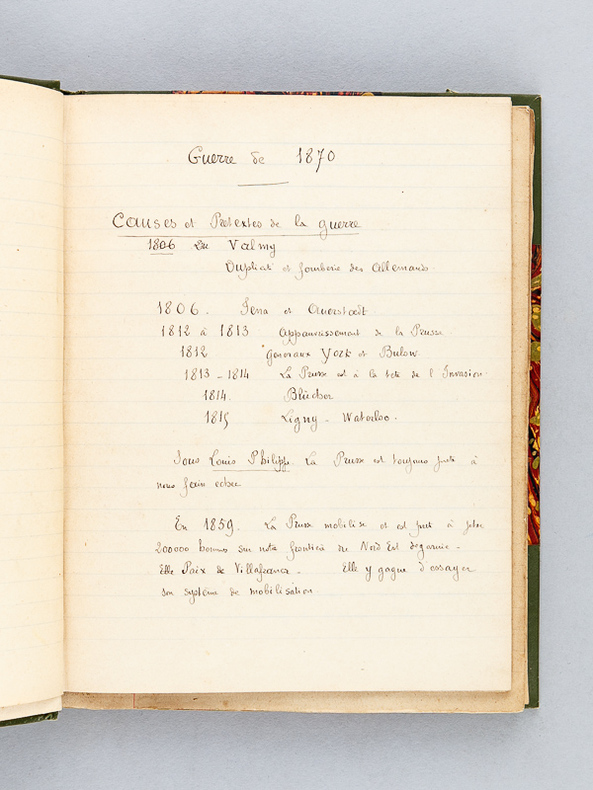 Guerre de 1870
Causes et Pretextes de la guerre
1806 Valmy
Duplicité et fourberie des Allemands.
1806. Iena et Auerstaedt
1812 à 1813 appauvrissement de la Prusse.
1812 Generaux York et Bulow.
1813-1814 La Prusse est à la tete de l'Invasion.
1814. Blücher
1815 Ligny - Waterloo.
Sous Louis Philippe. La Prusse est toujours prete à
nous faire echec
En 1859. La Prusse mobilise et est prete à jeter
200000 hommes sur notre frontière du Nord Est degarnie.
Elle Paix de Villafranca. Elle y gagne d'essayer
son système de mobilisation.